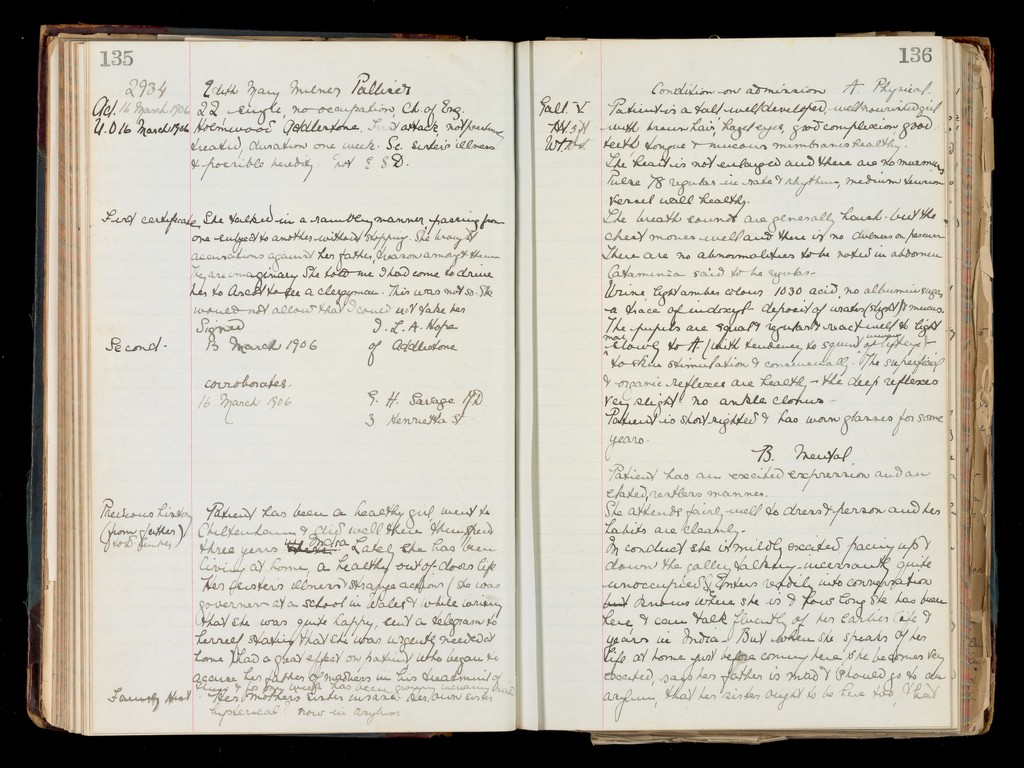 135
2934 Edith Mary Milner Palliser
Ad. 16 March 1906 22 single, no occupation, Ch. of Eng.
U.O 16 March 1906 Holmwood Addlestone. First attack, not previously
treated, duration one week. Sc. Sister's illness
& possible heredity. Not E S D.
First certificate She talked in a rambling manner passing from
one subject to another without stopping. She brought
accusations against her father,
They are imaginary. She told me I had come to drive
her to Ascot to see a clergyman. This was not so. She
would not allow that I could not take her
Signed L. A. Hope
Second 13 March 1906 of Addlestone
corroborates.
16 March 1906 G. H. Savage MD
3 Henrietta St
Previous history Patient has been a healthy girl went to
(from father) Cheltenham & did well there & then spent
three years in India. Lately she has been
living at home, a healthy out of doors life
Her sister's illness & strange actions (she was
governess at a school in Wales & while writing
that she was quite happy, sent a telegram to
herself stating that she was urgently needed at
home) had a great effect on patient who began to
accuse her father of madness in his treatment of
them & for one week has been growing increasingly
Family Hist Her mother's sister insane. Her own sister
hysterical? now in asylum
136
Condition on admission A Physical.
Gall V Patient is a tall well developed, well nourished girl
Ht with brown hair, hazel eyes, good complexion good
Wt teeth tongue & mucous membranes healthy.
The heart is not enlarged and there are no murmurs
Pulse 78 regular in rate & rhythm, medium tension
vessel wall healthy.
The breath sounds are generally harsh but the
chest moves well and there is no dulness on percussn
There are no abnormalities to be noted in abdomen
Catamenia said to be regular.
Urine, light amber colour 1030 acid, no albumin sugar
a trace of indoxyl deposit of urates (slight) & mucus.
The pupils are equal & regular & react well to light
more slowly to A (with tendency to squint
to skin stimulation & consensually. The superficial
& organic reflexes are healthy - the deep reflexes
very slight no ankle clonus -
Patient is short sighted & has worn glasses for some
years.
B. Mental
Patient has an excited expression and an
elated, restless manner.
She attends fairly well to dress & person and her
habits are cleanly.
In conduct she is mildly excited pacing up &
down the gallery talking incessantly quite
unoccupied & enters readily into conversation
knows where she is & how long she has been
here & can talk fluently of her earlier life &
years in India - But when she speaks of her
life at home just before coming here she becomes very
excited, says her father is mad & should go to an
asylum, that her sister ought to be here too, & had